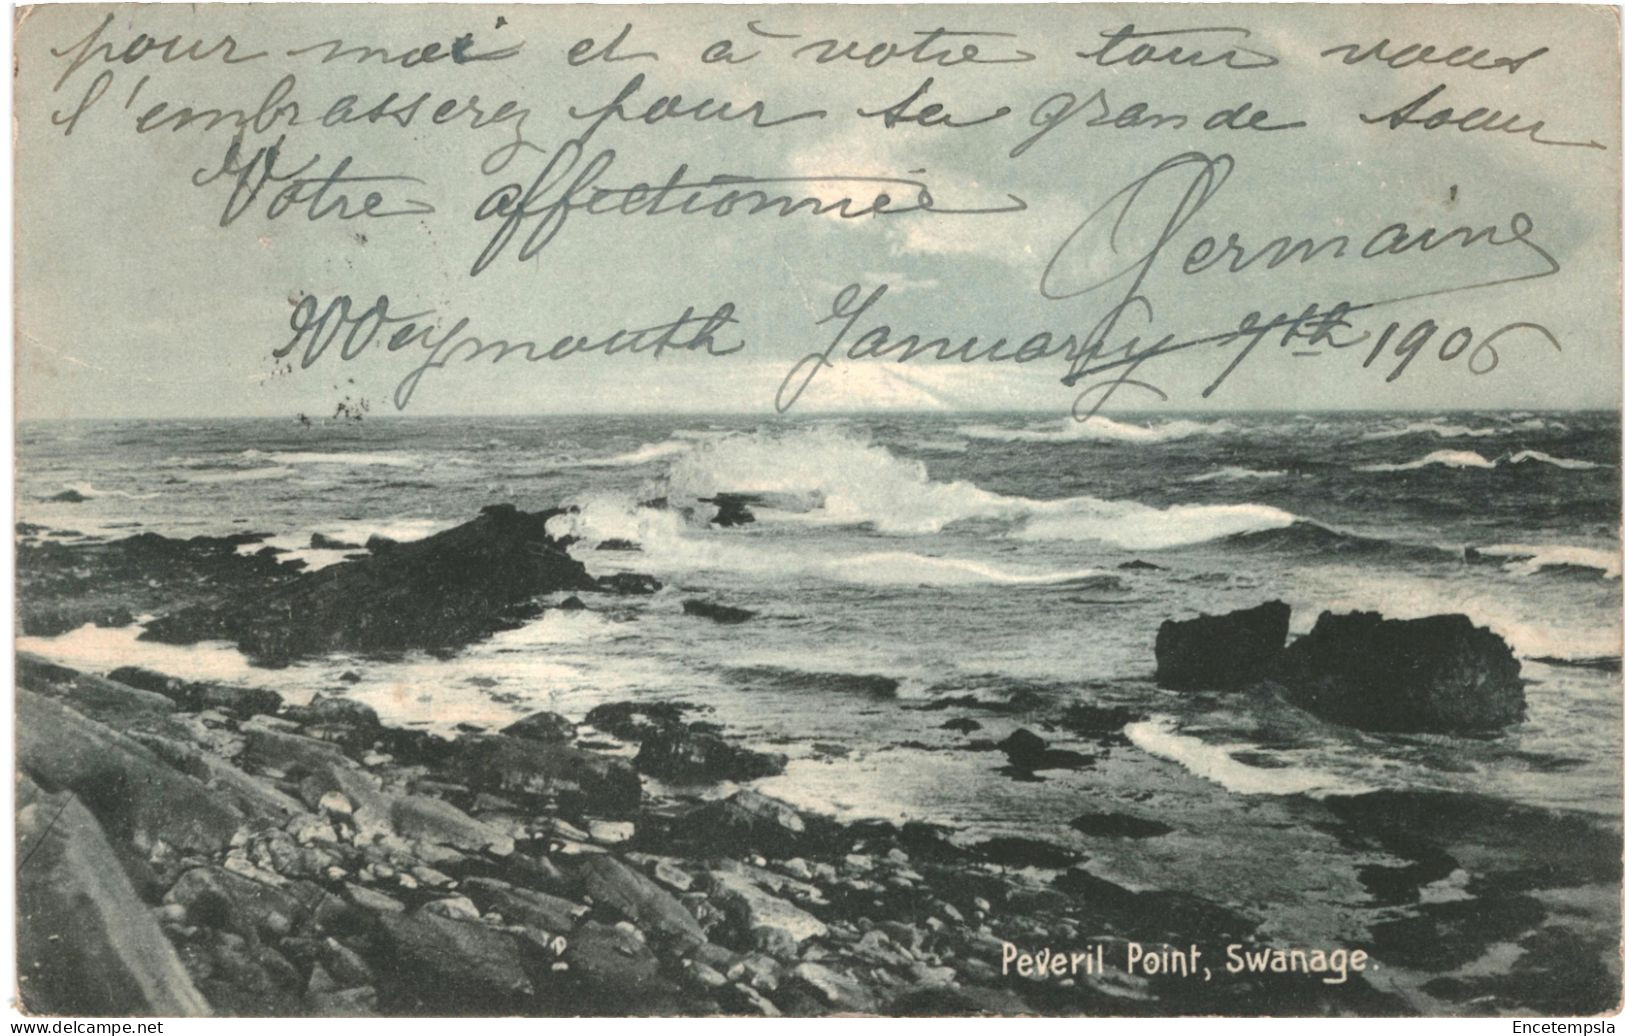 pour moi et à votre tour vous
l'embrasserez pour sa grande soeur
Votre affectionnée Germaine
Weymouth January 7th 1906
Peveril Point, Swanage.
Encetempsla